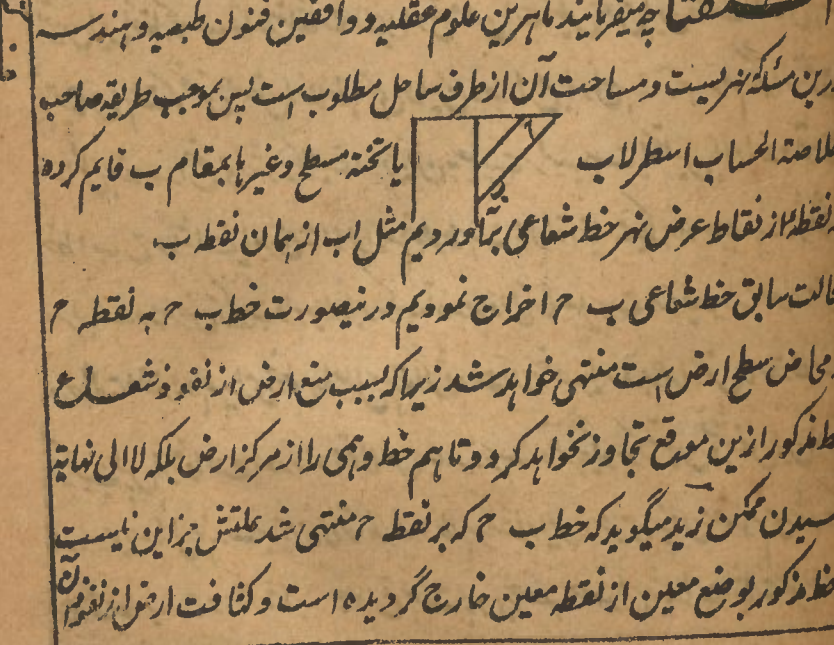 چه میفرمایند ماهرین علوم عقلیه و واقفین فنون طبعیه و هندسه
درین مسئله که نهریست و مساحت آن از طرف ساحل مطلوب است پس بموجب طریقه صاحب
خلاصة الحساب اسطرلاب یا تخته مسطح وغیرها بمقام ب قایم کرده
نقطهٔ از نقاط عرض نهر خط شعاعی برآوردیم مثل اب از همان نقطه ب
حالت سابق خط شعاعی ب ح اخراج نمودیم درینصورت خط ب ح به نقطه ح
محاض سطح ارض است منتهی خواهد شد زیرا که بسبب منع ارض از نفوذ شعاع
خط مذکور ازین موقع تجاوز نخواهد کرد و تا هم خط وهمی را از مرکز ارض بلکه لا الی نهایة
رسیدن ممکن زید میگوید که خط ب ح که بر نقطه ح منتهی شد علتش جز این نیست
خط مذکور بوضع معین از نقطه معین خارج گردیده است و کثافت ارض از نفوذ آن